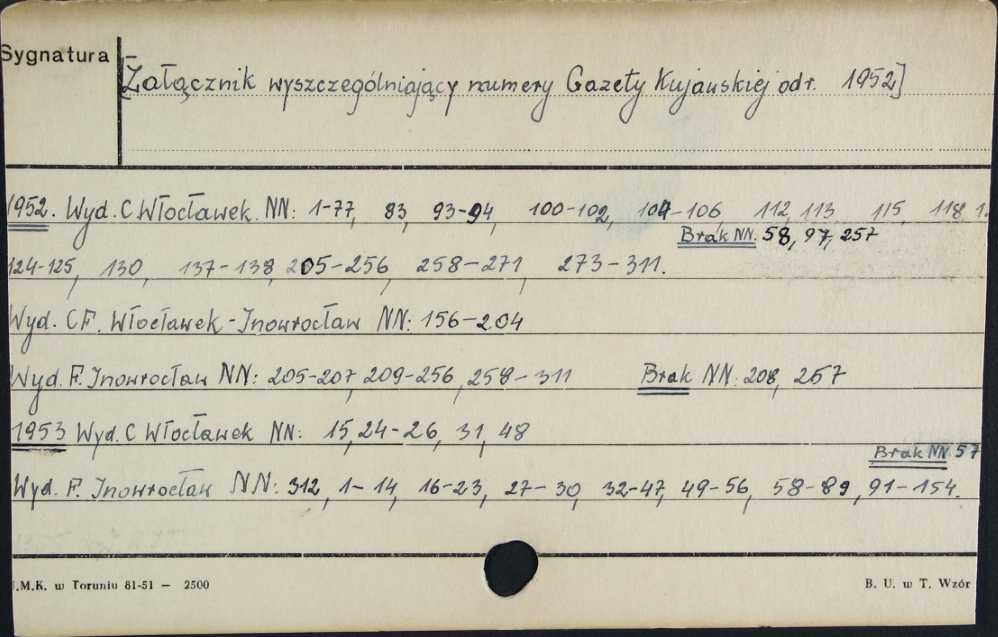 Sygnatura
[Załącznik wyszczególniający numery Gazety Kujawskiej od r. 1952]
1952. Wyd. C Włocławek NN: 1-77, 83, 93-94, 100-102, 104-106 112, 113 115, 118
Brak NN. 58, 97, 257
124-125, 130, 137-138, 205-256, 258-271, 273-311.
Wyd. CF. Włocławek-Inowrocław NN: 156-204
Wyd. F. Inowrocław NN: 205-207, 209-256, 258-311 Brak NN: 208, 257
1953 Wyd. C Włocławek NN: 15, 24-26, 31, 48
Brak NN. 57
Wyd. F. Inowrocław NN: 312, 1-14, 16-23, 27-30, 32-47, 49-56, 58-89, 91-154.
.M.K. w Toruniu 81-51 — 2500
B. U. w T. Wzór